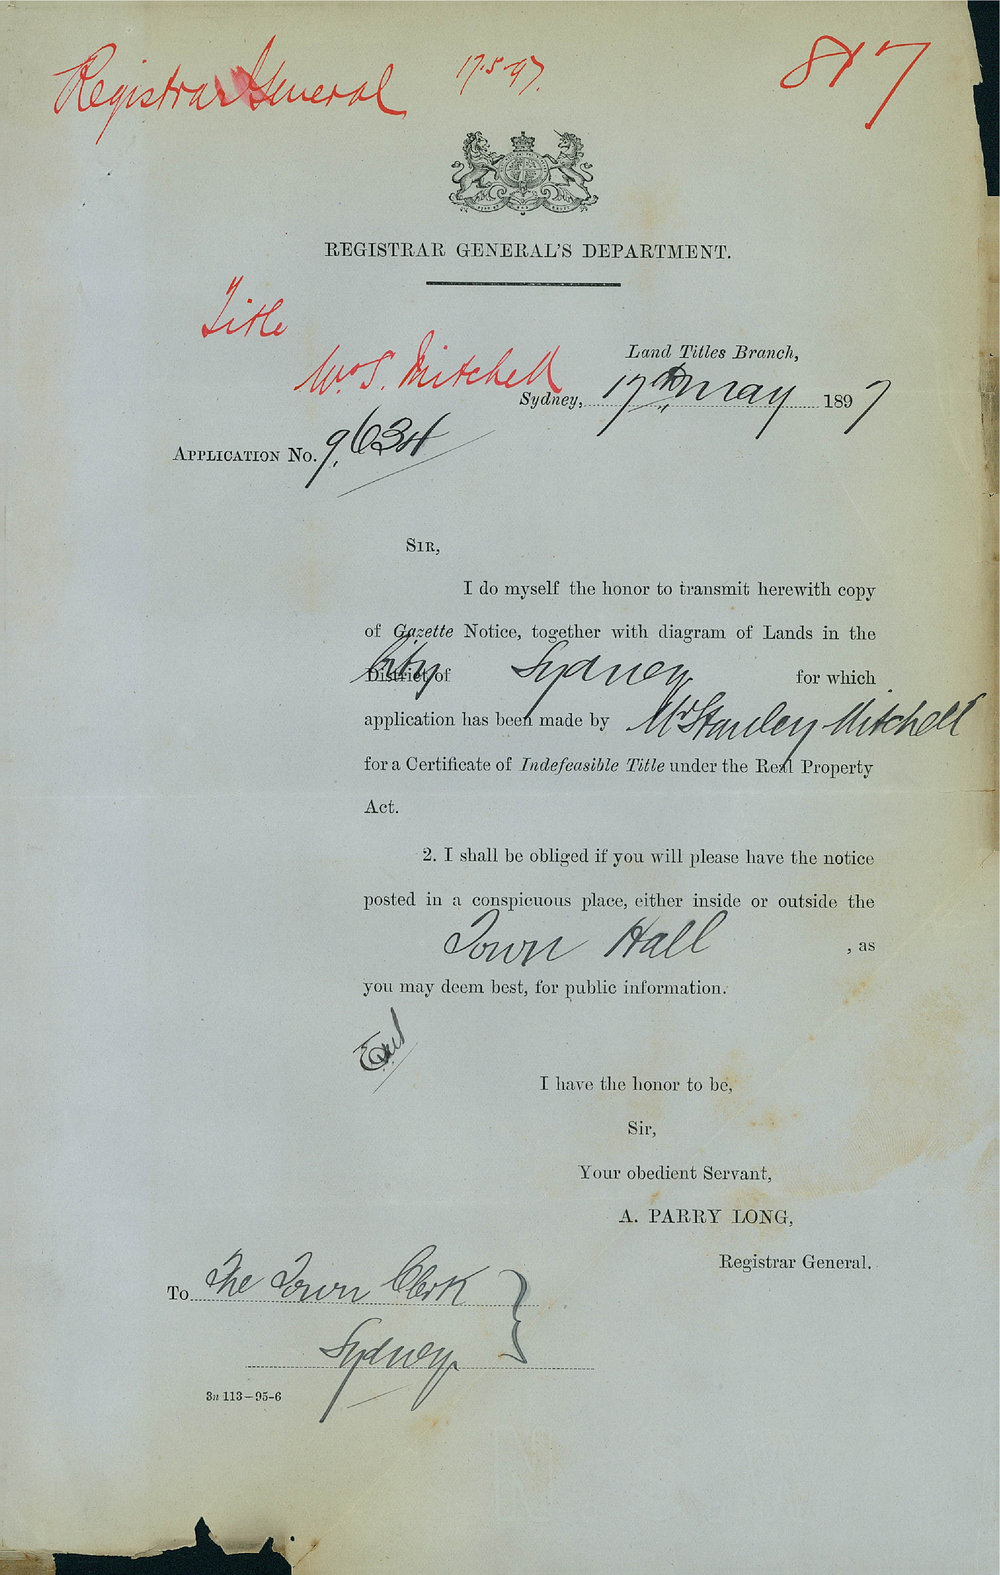 Registrar General 17.5.97. 817
REGISTRAR GENERAL'S DEPARTMENT.
Title
S. Mitchell
Land Titles Branch,
Sydney, 17th May 1897
APPLICATION No. 9,634
SIR,
I do myself the honor to transmit herewith copy
of Gazette Notice, together with diagram of Lands in the
City
District of Sydney for which
application has been made by Mr Stanley Mitchell
for a Certificate of Indefeasible Title under the Real Property
Act.
2. I shall be obliged if you will please have the notice
posted in a conspicuous place, either inside or outside the
Town Hall , as
you may deem best, for public information.
I have the honor to be,
Sir,
Your obedient Servant,
A. PARRY LONG,
Registrar General.
To The Town Clerk
Sydney
3n 113-95-6